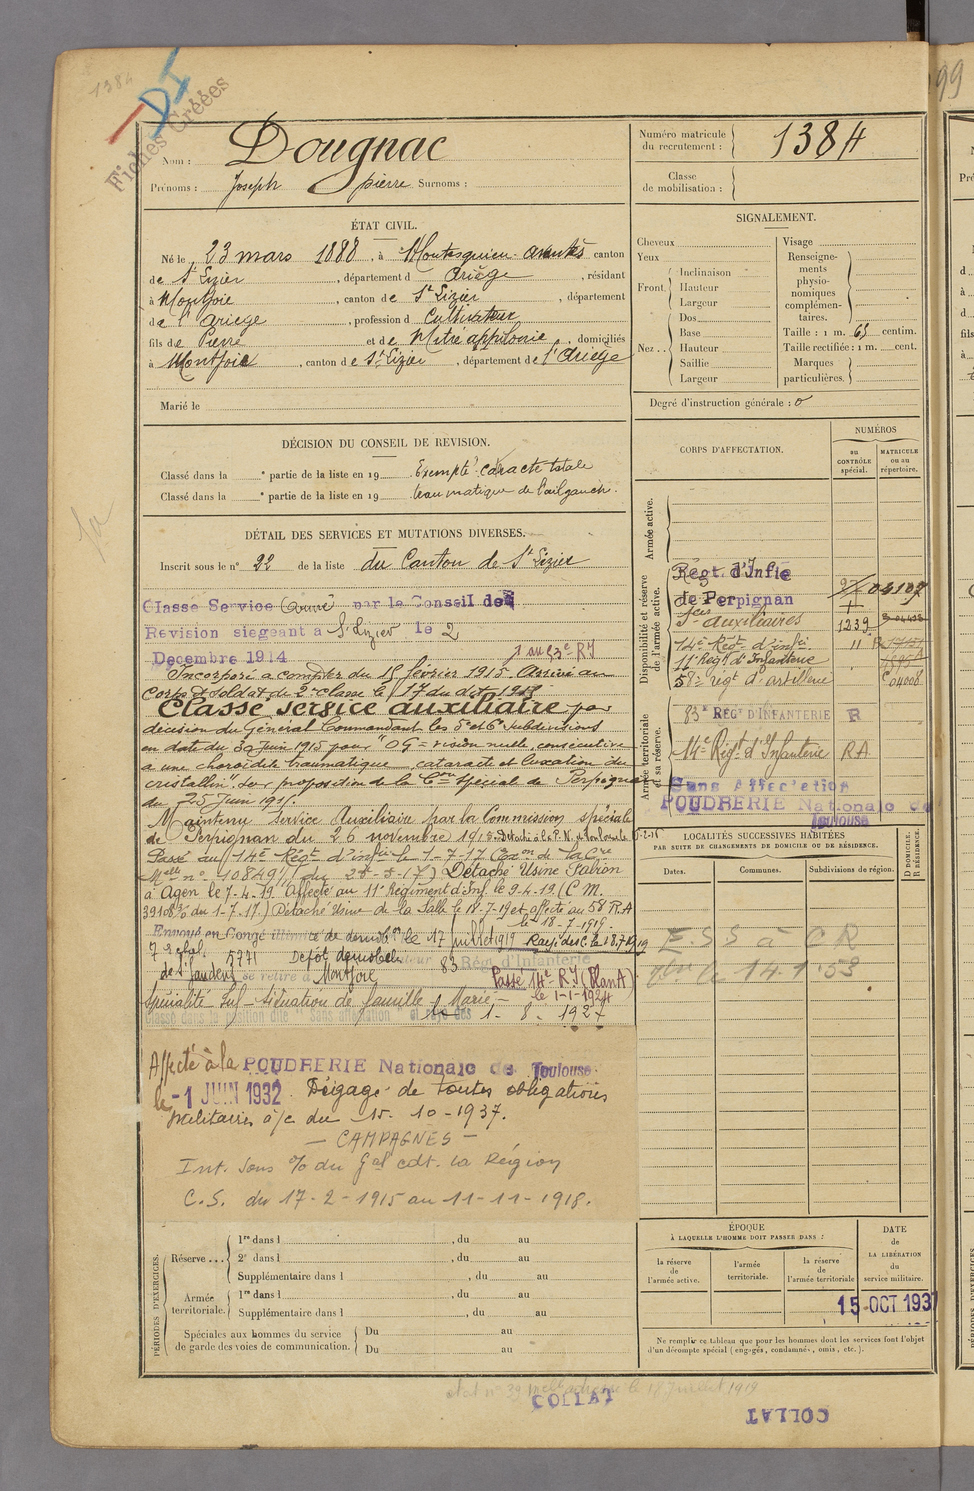 1384
DI
Fiches Créées
Nom : Dougnac
Prénoms : Joseph pierre Surnoms :
Numéro matricule
du recrutement : 1384
Classe
de mobilisation :
ÉTAT CIVIL.
Né le 23 mars 1888, à Montesquieu-avantès canton
de St Lizier, département d Ariège, résidant
à Montjoie, canton de St Lizier, département
de l'Ariège, profession d Cultivateur
fils de Pierre et de Mitré appilonie, domiciliés
à Montjoie, canton de St Lizier, département de l'Ariège
Marié le
SIGNALEMENT.
Cheveux
Yeux
Front. Inclinaison
Hauteur
Largeur
Nez.. Dos
Base
Hauteur
Saillie
Largeur
Visage
Renseigne-
ments
physio-
nomiques
complémen-
taires.
Taille : 1 m. 65 centim.
Taille rectifiée : 1 m. cent.
Marques
particulières.
Degré d'instruction générale : 0
DÉCISION DU CONSEIL DE REVISION.
Classé dans la e partie de la liste en 19 Exempté caracte totale
Classé dans la e partie de la liste en 19 traumatique de l'œil gauch.
DÉTAIL DES SERVICES ET MUTATIONS DIVERSES.
Inscrit sous le n° 22 de la liste du Canton de St Lizier
Classe Service Armé par le Conseil de
Revision siegeant a St Lizier le 2
Decembre 1914
Incorporé à compter du 15 février 1915. Arrivé au
Corps et soldat de 2e classe le 17 du dt
Classé service auxiliaire par
décision du Général Commandant les 5e et 6e subdivisions
en date du 30 juin 1915 pour "OG = vision nulle, consecutive
a une choroïdite traumatique cataracte et luxation du
cristallin". Sur proposition de la Con Spécial de Perpignan
du 25 Juin 1915.
Maintenu Service Auxiliaire par la Commission spéciale
de Perpignan du 26 novembre 191
Passé au 14e Régt d'infie le 1-7-17
Melle n° 10849 Détaché Usine Fabron
à Agen le 7-4-19 Affecté au 11e Régiment d'Inf. le 9-4-19. (C M.
du 1-7-17.) Détaché Usine de la Salle le 18-7-19 et affecté au 58 R.A
le 18-7-1919.
Envoyé en Congé illimité de démobon le 17 juillet 1919
Dépôt démobilisateur 83 Rég. d'Infanterie
de St Gaudens se retire à Montjoie
Passé 14e RI (Plan A)
le 1-1-1924
Situation de famille Marié
Classé dans la position dite "Sans affectation" et rayé des
le 1-8-1927
Affecté à la POUDRERIE Nationale de Toulouse
le -1 JUIN 1932. Dégagé de toutes obligations
militaires à/c du 15-10-1937.
— CAMPAGNES —
Int. Sous % du Gal cdt. la Région
C.S. du 17-2-1915 au 11-11-1918.
CORPS D'AFFECTATION.
NUMÉROS
au
CONTRÔLE
spécial.
MATRICULE
ou au
répertoire.
Armée active.
Disponibilité et réserve
de l'armée active.
Régt. d'Infie
de Perpignan
Sces auxiliaires 1239
14e Régt d'infie
11e Régt d'Infanterie
58e régt d'artillerie 04008
Armée territoriale
et sa réserve.
83e RÉGt D'INFANTERIE R
14e Régt d'Infanterie RA
Sans Affectation
POUDRERIE Nationale de
Toulouse
LOCALITÉS SUCCESSIVES HABITÉES
PAR SUITE DE CHANGEMENTS DE DOMICILE OU DE RÉSIDENCE.
Dates.
Communes.
Subdivisions de région.
D DOMICILE.
R RÉSIDENCE.
14.1.53
PÉRIODES D'EXERCICES.
Réserve... 1re dans l , du au
2e dans l , du au
Supplémentaire dans l , du au
Armée
territoriale. 1re dans l , du au
Supplémentaire dans l , du au
Spéciales aux hommes du service
de garde des voies de communication. Du au
Du au
ÉPOQUE
À LAQUELLE L'HOMME DOIT PASSER DANS :
la réserve
de
l'armée active.
l'armée
territoriale.
la réserve
de
l'armée territoriale
DATE
de
LA LIBÉRATION
du
service militaire.
15 OCT 1937
Ne remplir ce tableau que pour les hommes dont les services font l'objet
d'un décompte spécial (engagés, condamnés, omis, etc.).
COLLAT
COLLAT